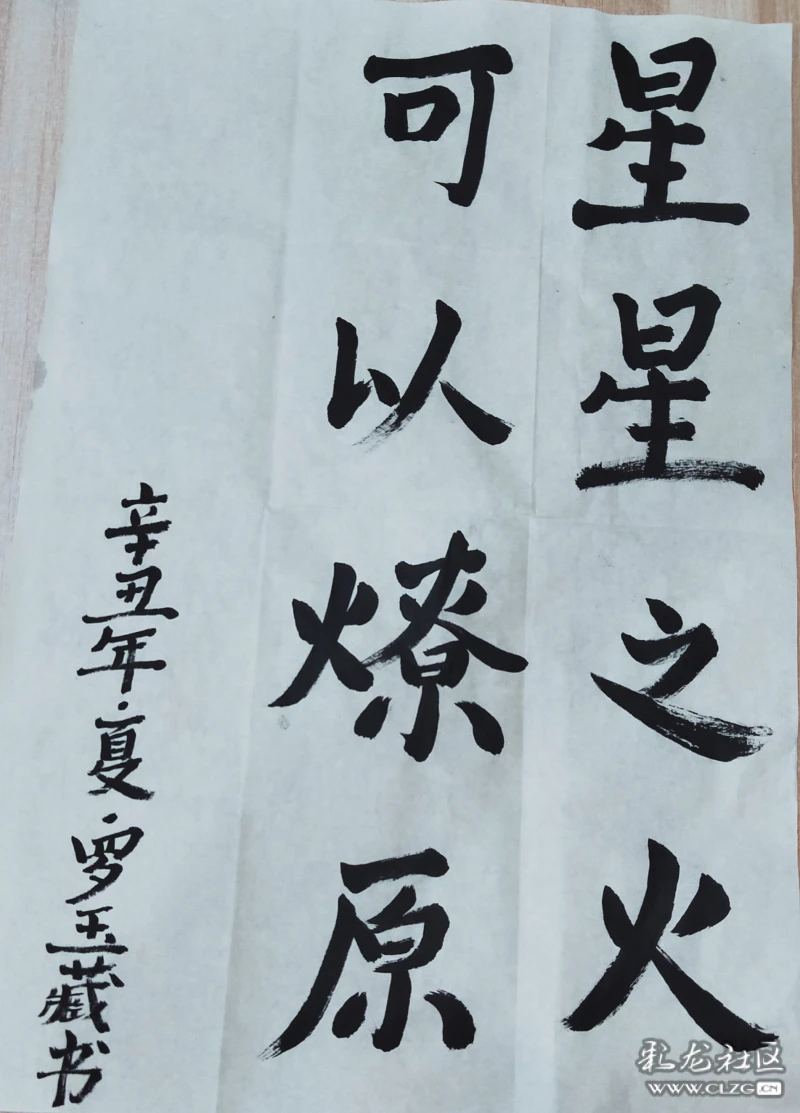 星星之火
可以燎原
辛丑年·夏·罗玉藏书
彩龙社区
WWW.CLZG.CN